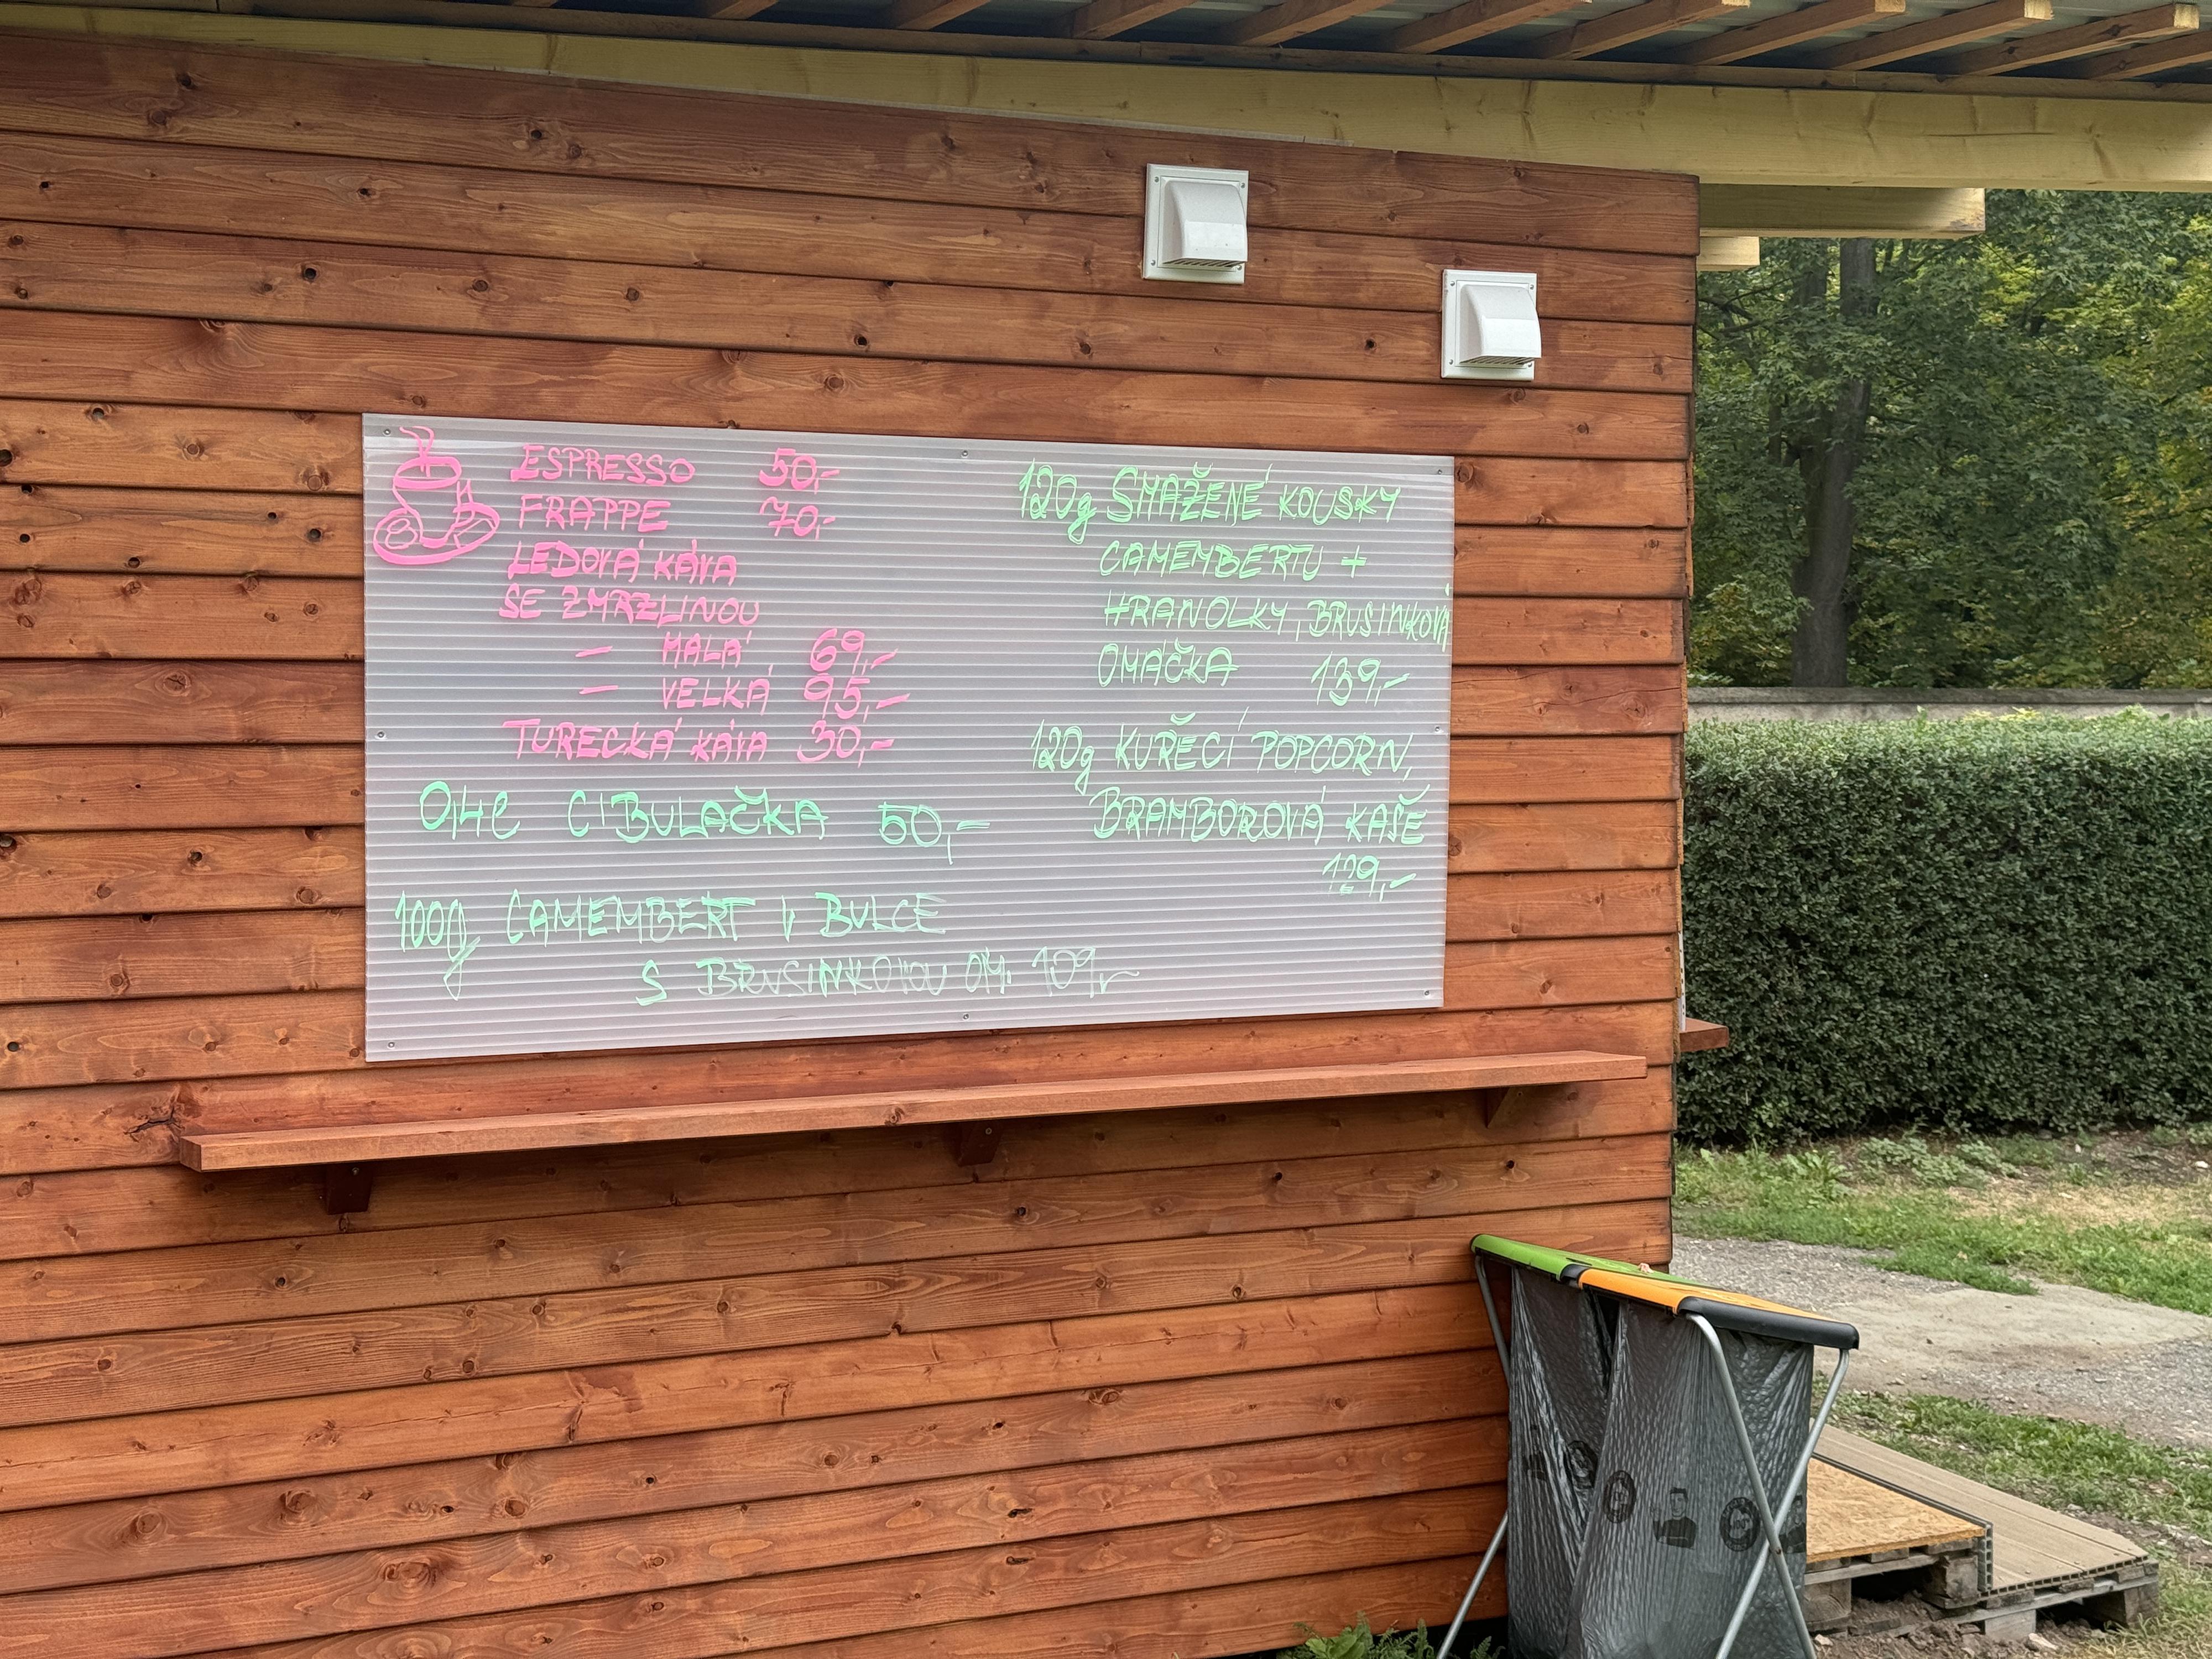 ESPRESSO 50,-
FRAPPE 70,-
LEDOVÁ KÁVA
SE ZMRZLINOU
- MALÁ 69,-
- VELKÁ 95,-
TURECKÁ KÁVA 30,-
0,4l CIBULAČKA 50,-
100g CAMEMBERT V BULCE
S BRUSINKOVOU OM. 109,-
120g SMAŽENÉ KOUSKY
CAMEMBERTU +
HRANOLKY, BRUSINKOVÁ
OMÁČKA 139,-
120g KUŘECÍ POPCORN,
BRAMBOROVÁ KAŠE
129,-